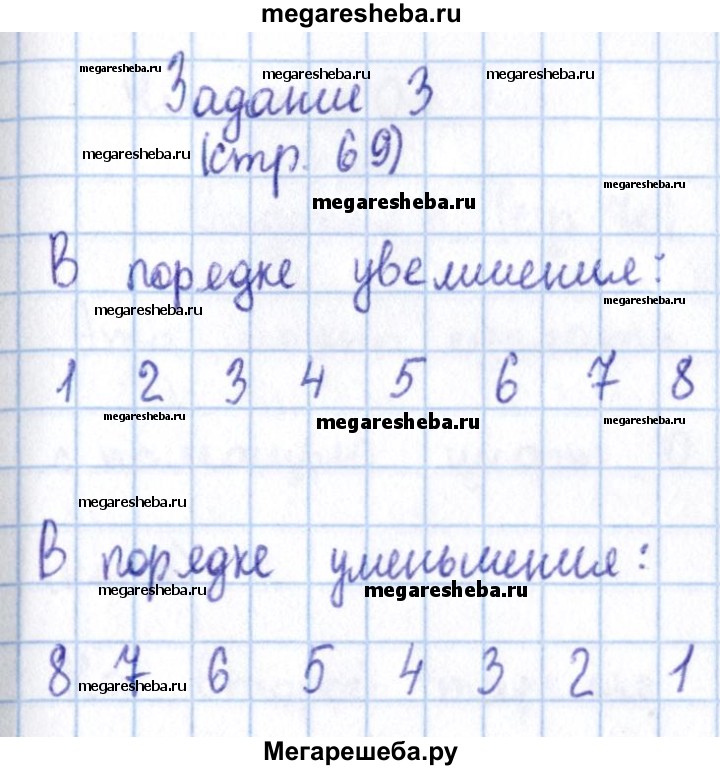 megaresheba.ru
megaresheba.ru megaresheba.ru megaresheba.ru
Задание 3
megaresheba.ru (стр. 69)
megaresheba.ru
megaresheba.ru
В порядке увеличения:
megaresheba.ru megaresheba.ru
1 2 3 4 5 6 7 8
megaresheba.ru megaresheba.ru
megaresheba.ru
В порядке уменьшения:
megaresheba.ru megaresheba.ru
8 7 6 5 4 3 2 1
megaresheba.ru
Мегарешеба.ру